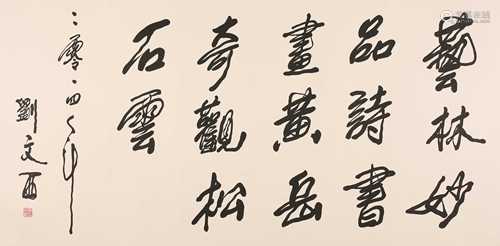 藝林妙
品詩書
畫黄岳
奇觀松
石雲
二零一四年
劉文西